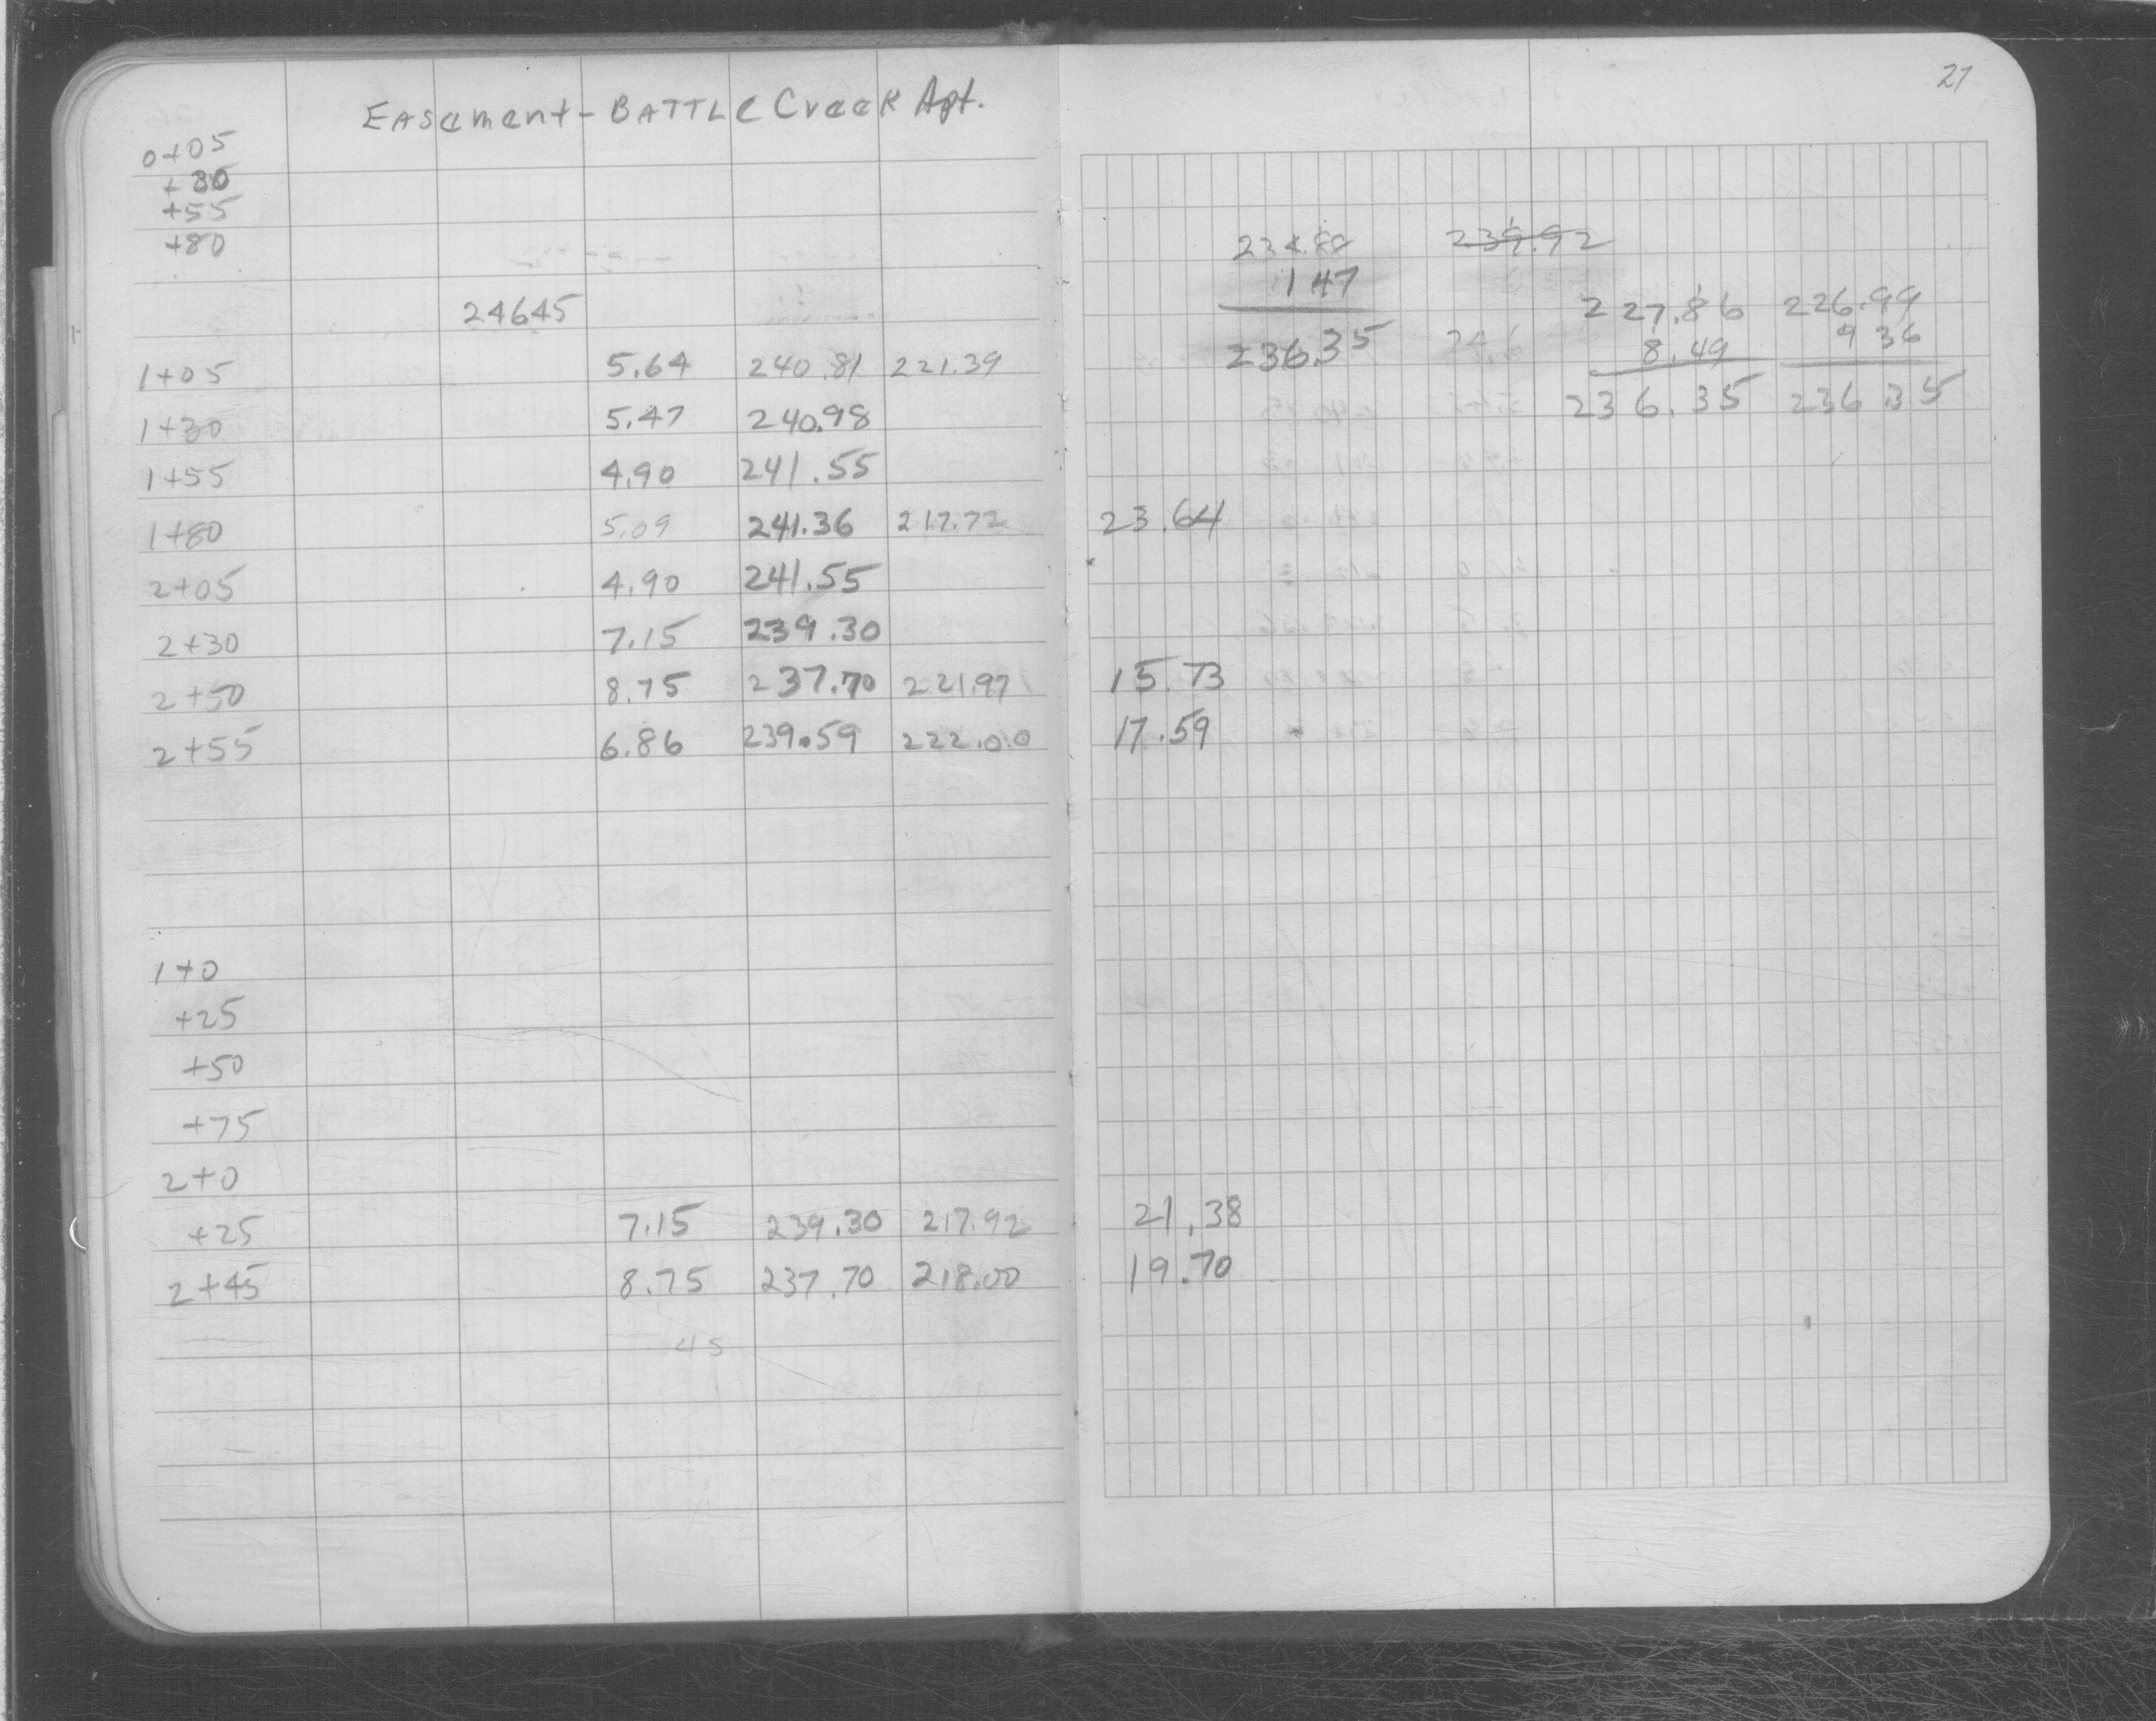 Easement - Battle Creek Apt.
0+05
+30
+55
+80
24645
1+05 5.64 240.81 221.39
1+30 5.47 240.98
1+55 4.90 241.55
1+80 5.09 241.36 217.72
2+05 4.90 241.55
2+30 7.15 239.30
2+50 8.75 237.70 221.97
2+55 6.86 239.59 222.00
1+0
+25
+50
+75
2+0
+25 7.15 239.30 217.92
2+45 8.75 237.70 218.00
45
27
234.88 239.92
147
236.35
227.86 226.99
8.49 9 36
236.35 236.35
23.64
15.73
17.59
21.38
19.70